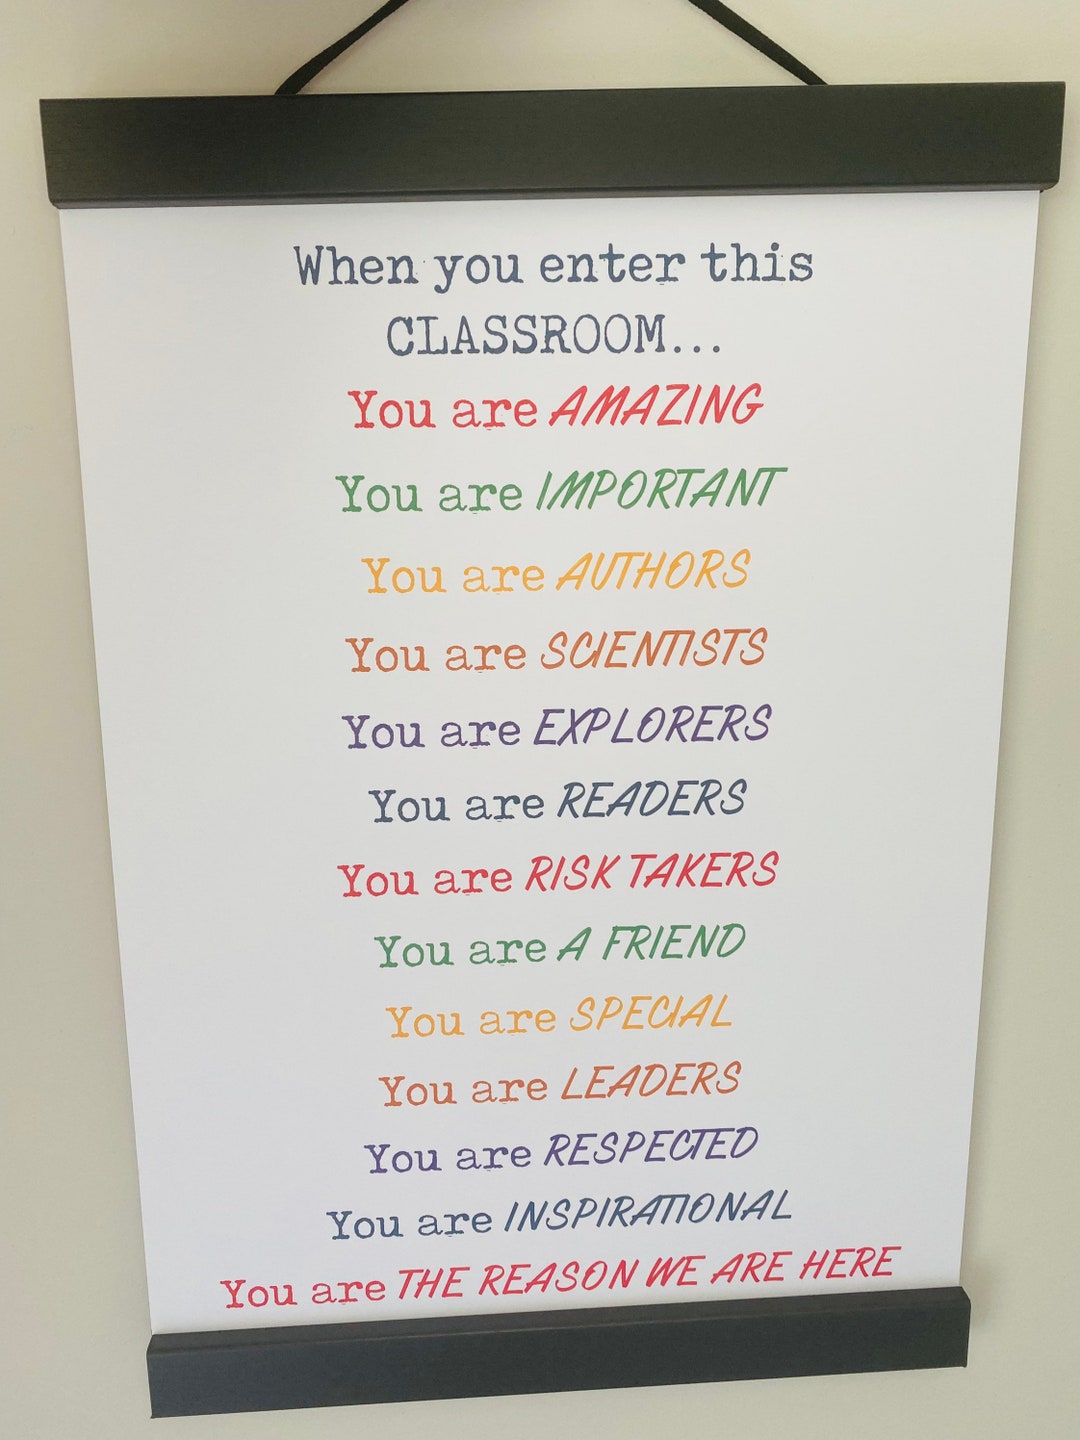 When you enter this
CLASSROOM...
You are AMAZING
You are IMPORTANT
You are AUTHORS
You are SCIENTISTS
You are EXPLORERS
You are READERS
You are RISK TAKERS
You are A FRIEND
You are SPECIAL
You are LEADERS
You are RESPECTED
You are INSPIRATIONAL
You are THE REASON WE ARE HERE